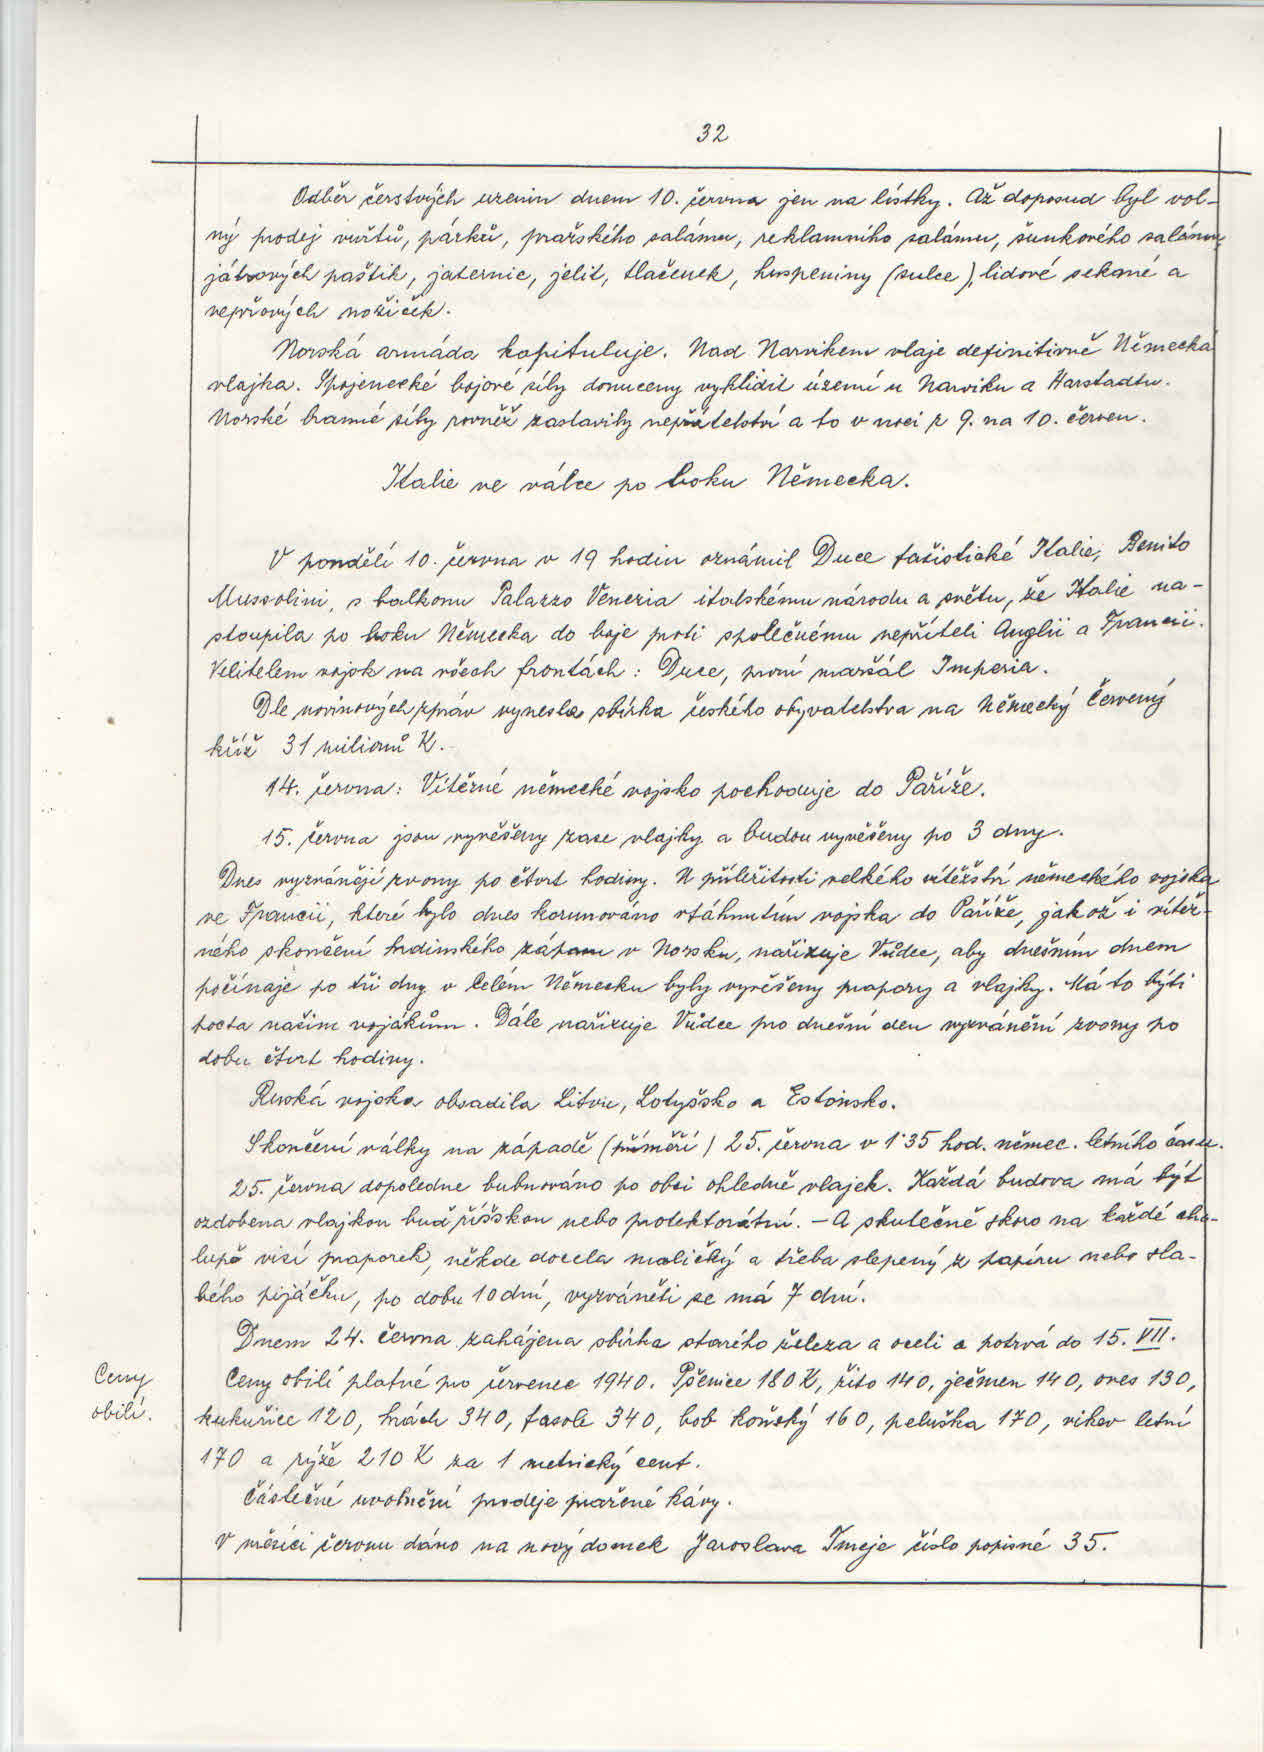 32
Odběr čerstvých uzenin dnem 10. června jen na lístky. Až doposud byl vol-
ný prodej vuřtů, párků, pražského salámu, reklamního salámu, šunkového salámu,
játrových paštik, jaternic, jelit, tlačenek, huspeniny (sulce), lidové sekané a
vepřových nožiček.
Norská armáda kapituluje. Nad Narvikem vlaje definitivně Německá
vlajka. Spojenecké bojové síly donuceny vyklidit území u Narviku a Harstadtu.
Norské branné síly rovněž zastavily nepřátelství a to v noci z 9. na 10. červen.
Italie ve válce po boku Německa.
V pondělí 10. června v 19 hodin oznámil Duce fašistické Italie, Benito
Mussolini, s balkonu Palazzo Venezia italskému národu a světu, že Italie na-
stoupila po boku Německa do boje proti společnému nepříteli Anglii a Francii.
Velitelem vojsk na všech frontách: Duce, první maršál Imperia.
Dle novinových zpráv vynesla sbírka českého obyvatelstva na Německý Červený
kříž 31 milionů K.
14. června: Vítězné německé vojsko pochoduje do Paříže.
15. června jsou vyvěšeny zase vlajky a budou vyvěšeny po 3 dny.
Dnes vyzvánějí zvony po čtvrt hodiny. U příležitosti velkého vítězství německého vojska
ve Francii, které bylo dnes korunováno vtáhnutím vojska do Paříže, jakož i vítěz-
ného skončení hrdinského zápasu v Norsku, nařizuje Vůdce, aby dnešním dnem
počínaje po tři dny v celém Německu byly vyvěšeny prapory a vlajky. Má to býti
pocta našim vojákům. Dále nařizuje Vůdce pro dnešní den vyzvánění zvony po
dobu čtvrt hodiny.
Ruská vojska obsadila Litvu, Lotyšsko a Estonsko.
Skončení války na západě (příměří) 25. června v 1.35 hod. němec. letního času.
25. června dopoledne bubnováno po obci ohledně vlajek. Každá budova má být
ozdobena vlajkou buď říšskou nebo protektorátní. – A skutečně skoro na každé cha-
lupě visí praporek, někde docela maličký a třeba slepený z papíru nebo sla-
bého pijáčku, po dobu 10 dní, vyzváněti se má 7 dní.
Dnem 24. června zahájena sbírka starého železa a oceli a potrvá do 15. VII.
Ceny
obilí.
Ceny obilí platné pro červenec 1940. Pšenice 180 K, žito 140, ječmen 140, oves 130,
kukuřice 120, hrách 340, fasole 340, bob koňský 160, peluška 170, vikev letní
170 a rýže 210 K za 1 metrický cent.
Částečné uvolnění prodeje pražené kávy.
V měsíci červnu dáno na nový domek Jaroslava Tmeje číslo popisné 35.